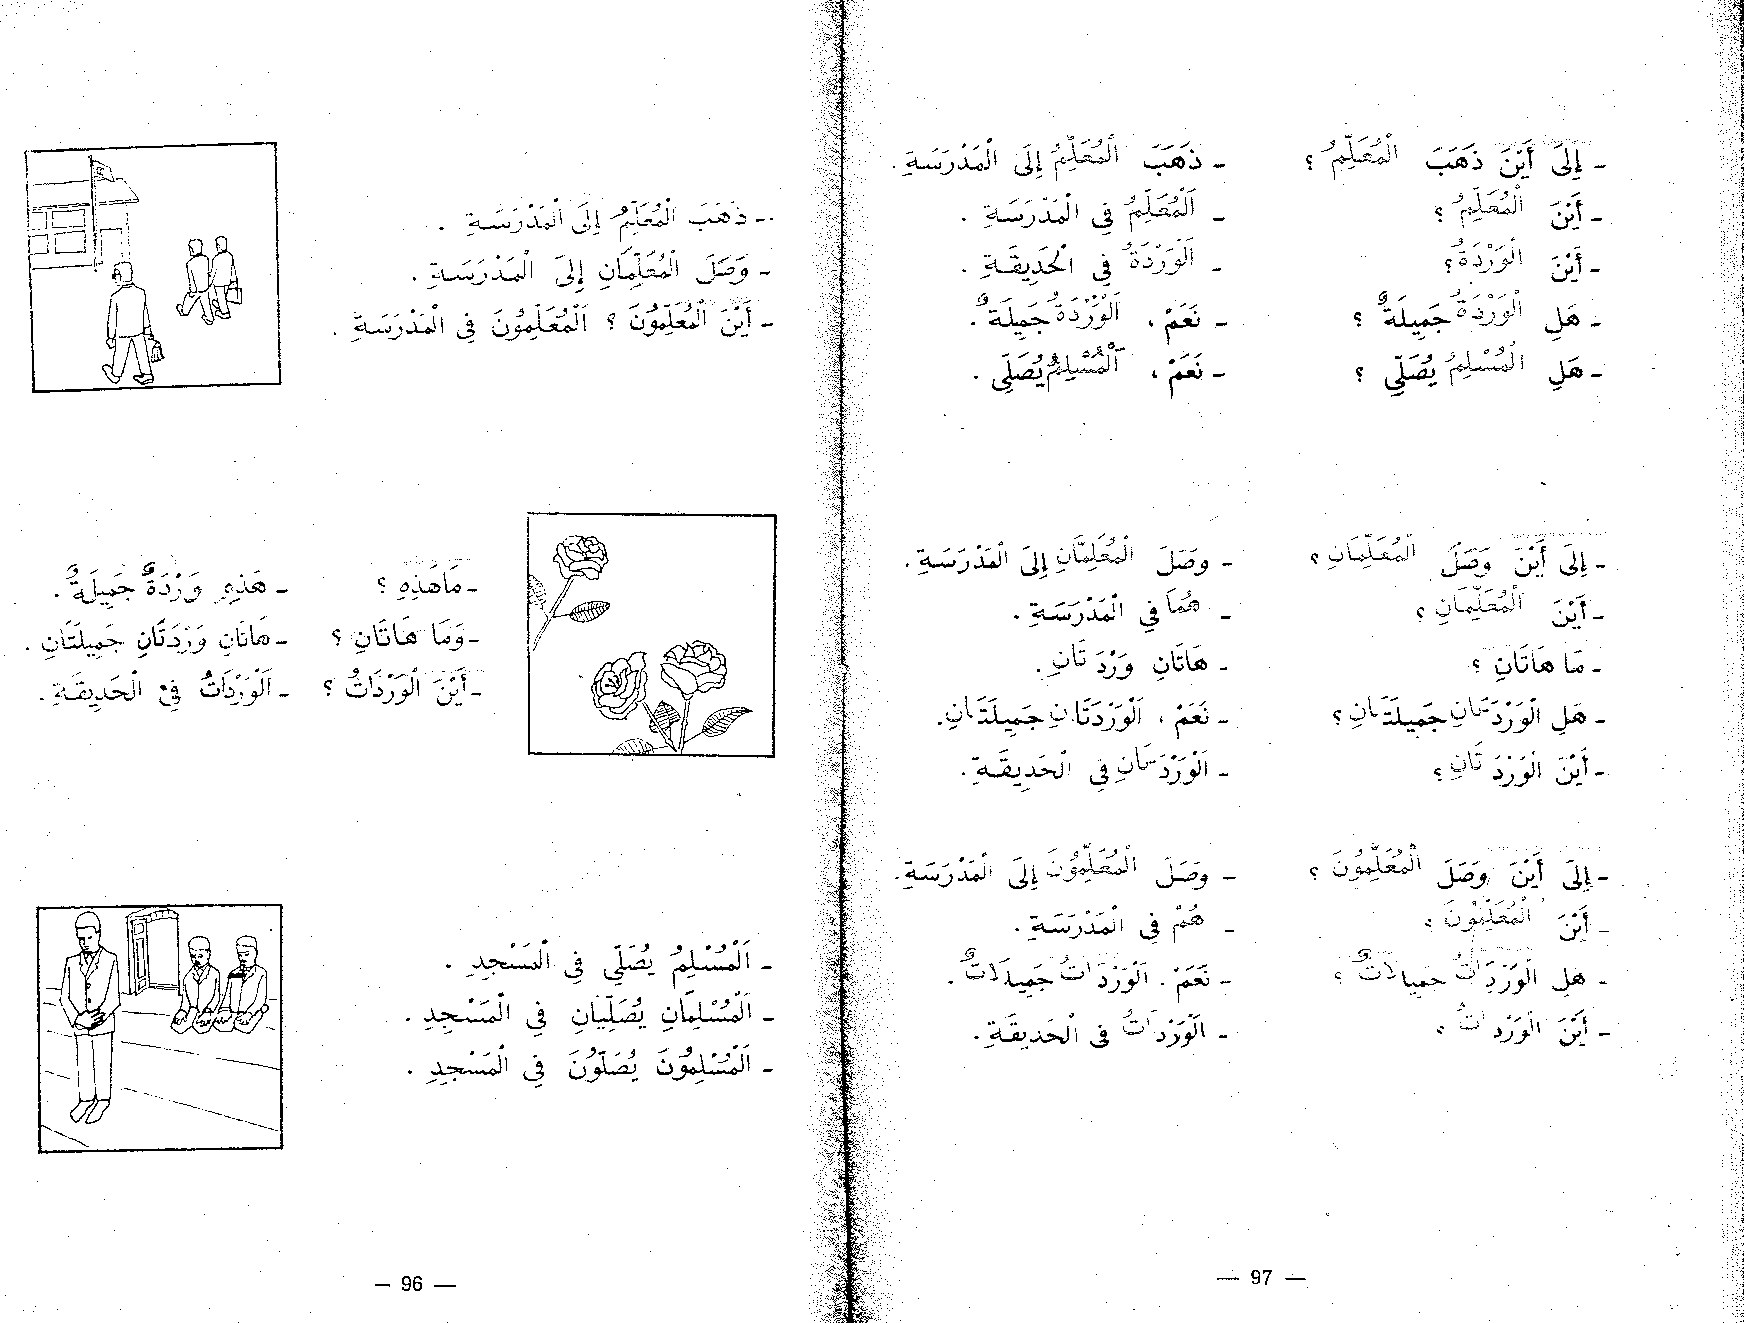 - ذَهَبَ الْمُعَلِّمُ إِلَى الْمَدْرَسَةِ .
- وَصَلَ الْمُعَلِّمَانِ إِلَى الْمَدْرَسَةِ .
- أَيْنَ الْمُعَلِّمُونَ ؟ اَلْمُعَلِّمُونَ فِي الْمَدْرَسَةِ .
- مَا هَذِهِ ؟ - هَذِهِ وَرْدَةٌ جَمِيلَةٌ .
- وَمَا هَاتَانِ ؟ - هَاتَانِ وَرْدَتَانِ جَمِيلَتَانِ .
- أَيْنَ الْوَرْدَاتُ ؟ - اَلْوَرْدَاتُ فِي الْحَدِيقَةِ .
- اَلْمُسْلِمُ يُصَلِّي فِي الْمَسْجِدِ .
- اَلْمُسْلِمَانِ يُصَلِّيَانِ فِي الْمَسْجِدِ .
- اَلْمُسْلِمُونَ يُصَلُّونَ فِي الْمَسْجِدِ .
— 96 —
- إِلَى أَيْنَ ذَهَبَ الْمُعَلِّمُ ؟ - ذَهَبَ الْمُعَلِّمُ إِلَى الْمَدْرَسَةِ .
- أَيْنَ الْمُعَلِّمُ ؟ - اَلْمُعَلِّمُ فِي الْمَدْرَسَةِ .
- أَيْنَ الْوَرْدَةُ ؟ - اَلْوَرْدَةُ فِي الْحَدِيقَةِ .
- هَلِ الْوَرْدَةُ جَمِيلَةٌ ؟ - نَعَمْ ، اَلْوَرْدَةُ جَمِيلَةٌ .
- هَلِ الْمُسْلِمُ يُصَلِّي ؟ - نَعَمْ ، اَلْمُسْلِمُ يُصَلِّي .
- إِلَى أَيْنَ وَصَلَ الْمُعَلِّمَانِ ؟ - وَصَلَ الْمُعَلِّمَانِ إِلَى الْمَدْرَسَةِ .
- أَيْنَ الْمُعَلِّمَانِ ؟ - هُمَا فِي الْمَدْرَسَةِ .
- مَا هَاتَانِ ؟ - هَاتَانِ وَرْدَتَانِ .
- هَلِ الْوَرْدَتَانِ جَمِيلَتَانِ ؟ - نَعَمْ ، اَلْوَرْدَتَانِ جَمِيلَتَانِ .
- أَيْنَ الْوَرْدَتَانِ ؟ - اَلْوَرْدَتَانِ فِي الْحَدِيقَةِ .
- إِلَى أَيْنَ وَصَلَ الْمُعَلِّمُونَ ؟ - وَصَلَ الْمُعَلِّمُونَ إِلَى الْمَدْرَسَةِ .
- أَيْنَ الْمُعَلِّمُونَ ؟ - هُمْ فِي الْمَدْرَسَةِ .
- هَلِ الْوَرْدَاتُ جَمِيلَاتٌ ؟ - نَعَمْ . اَلْوَرْدَاتُ جَمِيلَاتٌ .
- أَيْنَ الْوَرْدَاتُ ؟ - اَلْوَرْدَاتُ فِي الْحَدِيقَةِ .
— 97 —